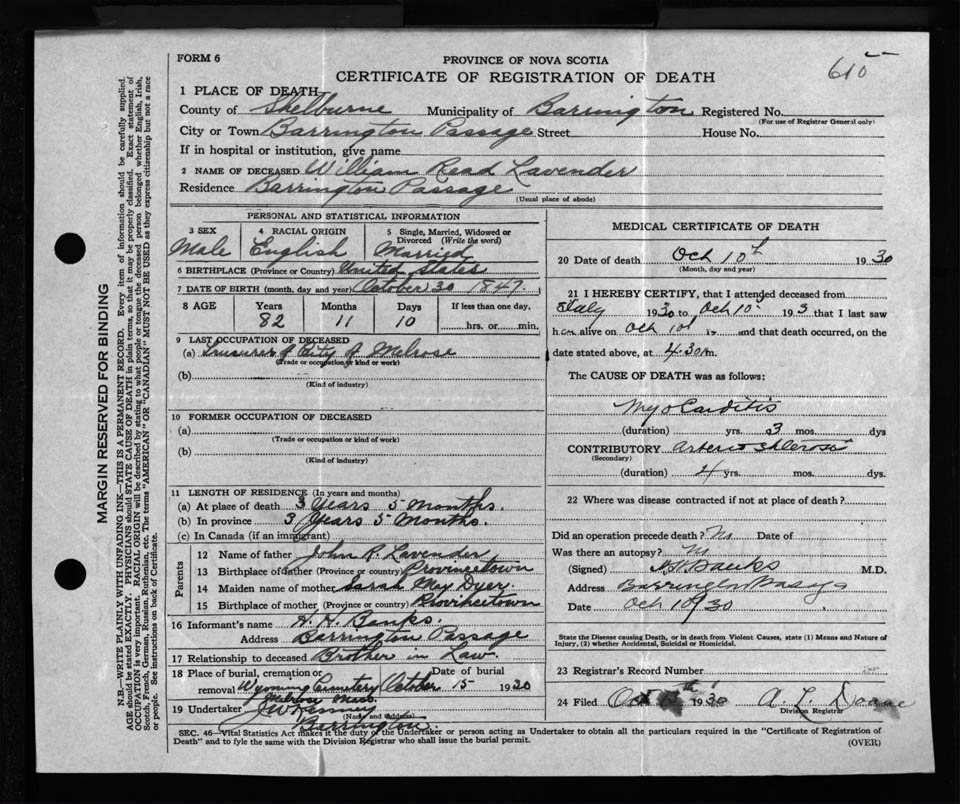 FORM 6
PROVINCE OF NOVA SCOTIA
CERTIFICATE OF REGISTRATION OF DEATH
615
1 PLACE OF DEATH
County of Shelburne Municipality of Barrington Registered No.
(For use of Registrar General only)
City or Town Barrington Passage Street House No.
If in hospital or institution, give name
2 NAME OF DECEASED William Read Lavender
Residence Barrington Passage
(Usual place of abode)
PERSONAL AND STATISTICAL INFORMATION
3 SEX 4 RACIAL ORIGIN 5 Single, Married, Widowed or Divorced (Write the word)
Male English Married
6 BIRTHPLACE (Province or Country) United States
7 DATE OF BIRTH (month, day and year) October 30 1847.
8 AGE Years Months Days If less than one day,
82 11 10 hrs. or min.
9 LAST OCCUPATION OF DECEASED
(a) of City of Melrose
(Trade or occupation or kind or work)
(b)
(Kind of industry)
10 FORMER OCCUPATION OF DECEASED
(a)
(Trade or occupation or kind of work)
(b)
(Kind of industry)
11 LENGTH OF RESIDENCE (In years and months)
(a) At place of death 3 Years 5 Months.
(b) In province 3 Years 5 Months.
(c) In Canada (if an immigrant)
Parents
12 Name of father John R. Lavender
13 Birthplace of father (Province or country) Provincetown
14 Maiden name of mother Sarah May Dyer.
15 Birthplace of mother (Province or country) Provincetown
16 Informant's name H. H. Banks.
Address Barrington Passage
17 Relationship to deceased Brother in Law.
18 Place of burial, cremation or Date of burial
removal Wyoming Cemetery October 15 1930
Melrose Mass.
19 Undertaker J W Kenney
(Name and Address)
Barrington.
MEDICAL CERTIFICATE OF DEATH
20 Date of death Oct 10th 1930
(Month, day and year)
21 I HEREBY CERTIFY, that I attended deceased from
July 1930 to Oct 10 193 that I last saw
h im alive on Oct 10 19 and that death occurred, on the
date stated above, at 4.30 m.
The CAUSE OF DEATH was as follows:
Myocarditis
(duration) yrs. 3 mos. dys
CONTRIBUTORY Arterio
(Secondary)
(duration) 4 yrs. mos. dys.
22 Where was disease contracted if not at place of death?
Did an operation precede death? No Date of
Was there an autopsy? No
(Signed) H H Banks M.D.
Address Barrington Passage
Date Oct 10 30
State the Disease causing Death, or in death from Violent Causes, state (1) Means and Nature of
Injury, (2) whether Accidental, Suicidal or Homicidal.
23 Registrar's Record Number
24 Filed Oct 1930 A. L. Doane
Division Registrar
SEC. 46—Vital Statistics Act makes it the duty of the Undertaker or person acting as Undertaker to obtain all the particulars required in the "Certificate of Registration of
Death" and to fyle the same with the Division Registrar who shall issue the burial permit.
(OVER)
MARGIN RESERVED FOR BINDING
N.B.—WRITE PLAINLY WITH UNFADING INK—THIS IS A PERMANENT RECORD. Every item of information should be carefully supplied.
AGE should be stated EXACTLY. PHYSICIANS should STATE CAUSE OF DEATH in plain terms, so that it may be properly classified. Exact statement of
OCCUPATION is very important. RACIAL ORIGIN will be described by stating to what people or tongue the deceased person belonged whether English, Irish,
Scotch, French, German, Russian, Ruthenian, etc. The terms "AMERICAN" OR "CANADIAN" MUST NOT BE USED as they express citizenship but not a race
or people. See instructions on back of Certificate.